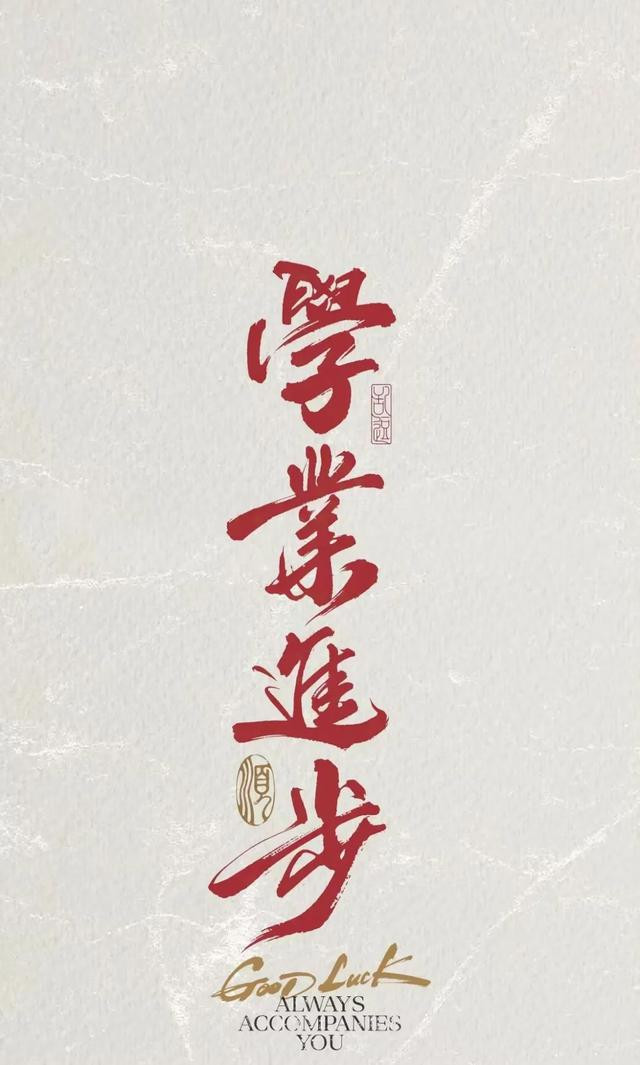 學業進步
順
GOOD LUCK
ALWAYS
ACCOMPANIES
YOU